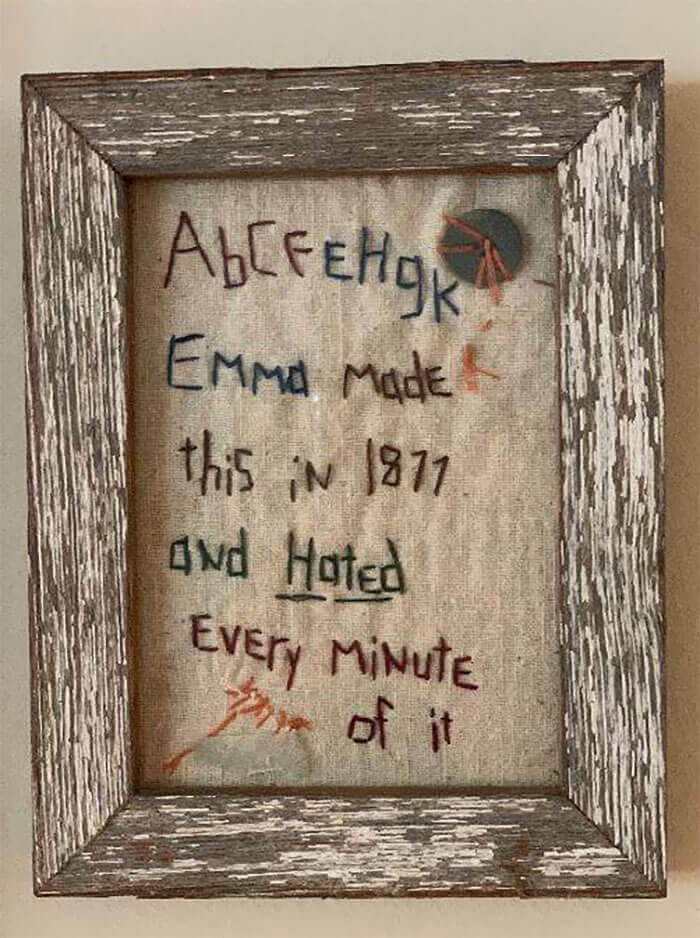 AbCFEHgK
Emma made
this in 1877
and Hated
Every Minute
of it